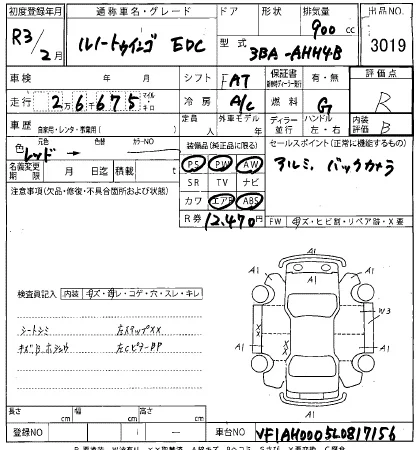 初度登録年月 通称車名・グレード ドア 形状 排気量 出品NO.
R3/2月 ルノートゥインゴ EDC 900cc 3019
型式 3BA-AHH4B
車検 年 月 シフト FAT 保証書 有・無 評価点
走行 2万6千675 マイル キロ 冷房 A/C 燃料 G R
車歴 自家用・レンタ・事業用( ) 定員 人 外車モデル 年 ディーラー 並行 ハンドル 左・右 内装評価 B
色 元色 レッド → カラーNO 装備品(純正品に限る) セールスポイント(正常に機能するもの)
名義変更期限 月 日迄 積載 t PS PW AW アルミ. バックカメラ
注意事項(欠品・修復・不具合箇所および状態) SR TV ナビ
カワ エアB ABS
R券 12,470円 FW キズ・ヒビ割・リペア跡・X要
A1
検査員記入 内装 キズ・コゲ・穴・スレ・キレ A1 A1
シートシミ 左ステップXX W3
キズB 左CピラーPP XX
A1 A1
A1
長さ cm 幅 cm 高さ cm
登録NO 車台NO VF1AH0005L0817156